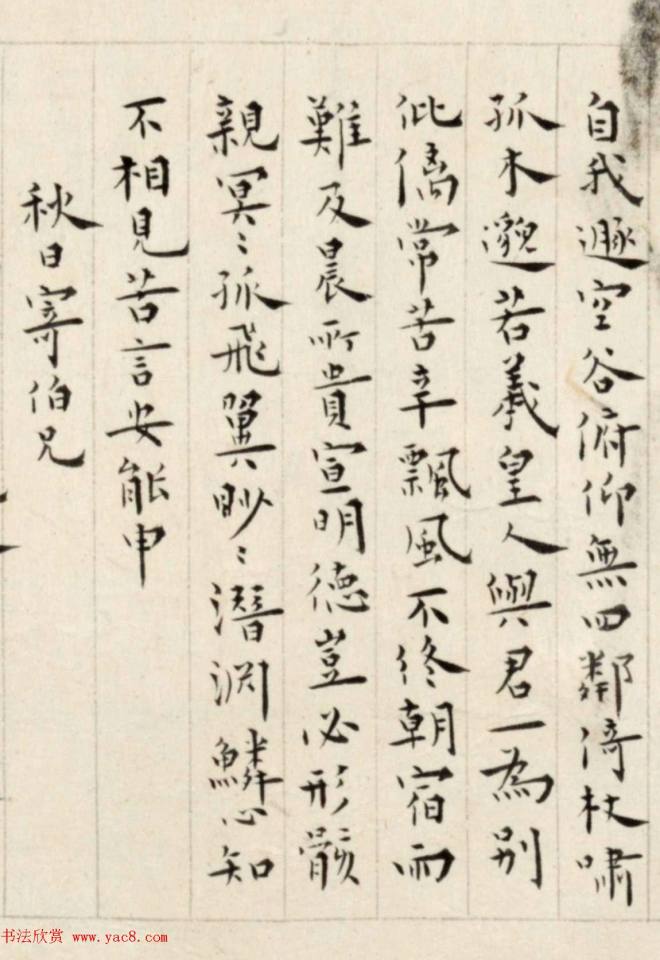 自我遯空谷俯仰無四鄰倚杖嘯
孤木邈若羲皇人與君一為別
仳常苦辛飄風不終朝宿雨
難及晨所貴宣明德豈必形骸
親冥〻孤飛翼眇〻潛淵鱗心知
不相見苦言安能申
秋日寄伯兄
书法欣赏 www.yac8.com